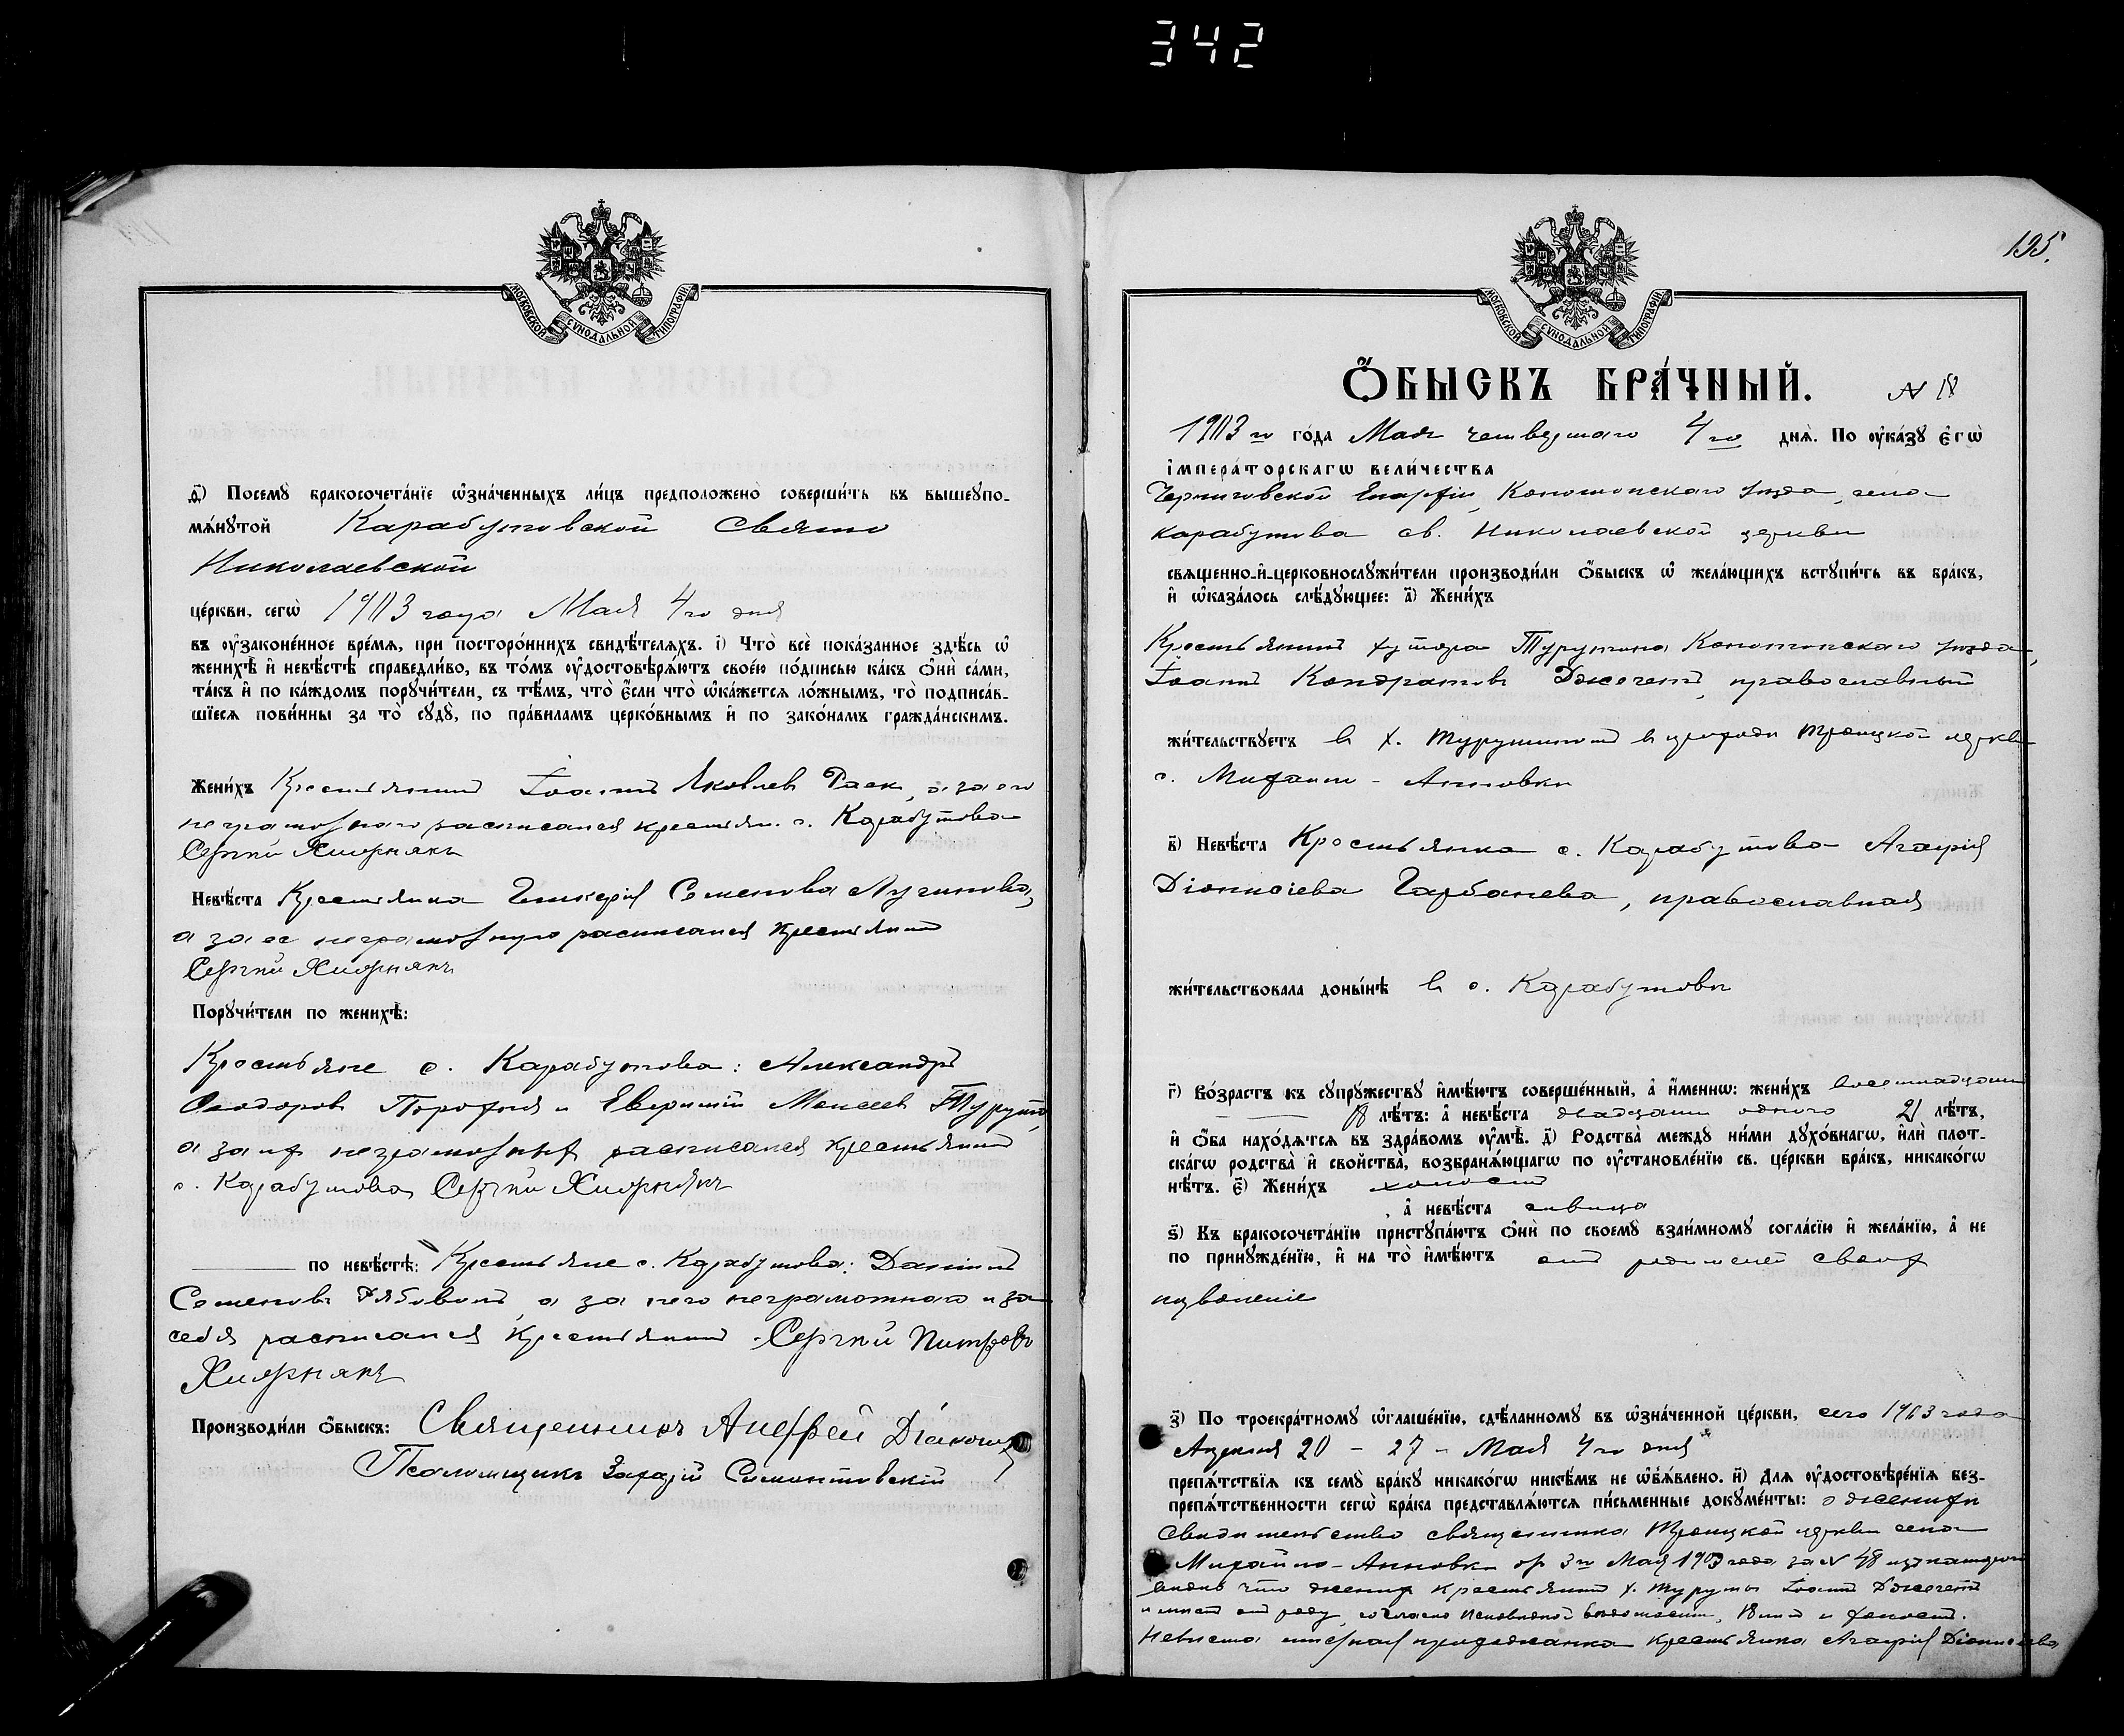 342
МОСКОВСКОЙ СѴНОДАЛЬНОЙ ТИПОГРАФІИ
д҃) Посемꙋ̀ бракосочета́нїе ѡ҆зна́ченныхъ ли́цъ предположено̀ соверши́ть въ вышеꙋпо-
мѧ́нꙋтой Карабутовской Свято
Николаевской
це́ркви, сегѡ̀ 1903 года Мая 4го дня
въ ѹ҆законе́нное вре́мѧ, при посторо́ннихъ свидѣ́телѧхъ. і҃) Что̀ всѐ пока́занное здѣ́сь ѡ҆
женихѣ̀ и҆ невѣ́стѣ справедли́во, въ то́мъ ѹ҆достовѣрѧ́ютъ свое́ю по́дписью ка́къ ѻ҆нѝ са́ми,
та́къ и҆ по ка́ждомъ порꙋчи́тели, съ тѣ́мъ, что̀ є҆́сли что̀ ѡ҆ка́жетсѧ ло́жнымъ, то̀ подписа́в-
шїесѧ пови́нны за то̀ сꙋдꙋ̀, по пра́виламъ церко́внымъ и҆ по зако́намъ гражда́нскимъ.
Жени́хъ Крестьянинъ Іоаннъ Яковлев, а за его
неграмотнаго расписался крестьян. с. Карабутова
Сергѣй Хижнякъ
Невѣ́ста Крестьянка Гликерія Семенова
а за ее неграмотную расписался крестьянинъ
Сергѣй Хижнякъ
Порꙋчи́тели по женихѣ̀:
Крестьяне с. Карабутова: Александръ
Феодоровъ и Моисеев
а за их неграмотных расписался крестьянинъ
с. Карабутова Сергѣй Хижнякъ
по невѣ́стѣ: Крестьяне с. Карабутова: Даніилъ
Семеновъ а за него неграмотнаго и за
себя расписался крестьянинъ Сергѣй Питровъ
Хижнякъ
Производи́ли ѻ҆́быскъ: Священникъ Андрей
Псаломщикъ
195.
МОСКОВСКОЙ СѴНОДАЛЬНОЙ ТИПОГРАФІИ
Ѻ҆́БЫСКЪ БРА́ЧНЫЙ. N 18
1903 го го́да Мая четвертаго 4го днѧ̀. По ѹ҆ка́зꙋ є҆гѡ̀
і҆мпера́торскагѡ вели́чества
Черниговской Епархіи, Конотопскаго уѣзда, села
Карабутова св. Николаевской церкви
свѧще́нно-и҆-церковнослꙋжи́тели производи́ли ѻ҆́быскъ ѡ҆ жела́ющихъ встꙋпи́ть въ бра́къ,
и҆ ѡ҆каза́лось слѣ́дꙋющее: а҃) Жени́хъ
Крестьянинъ хутора Конотопскаго уѣзда,
Іоаннъ Кондратовъ православный
жи́тельствꙋетъ в х. в приходѣ Троицкой церкви
с. Михайло - Анновки
в҃) Невѣ́ста Крестьянка с. Карабутова Агафія
Діонисіева Гарбанева, православная
жи́тельствовала доны́нѣ в с. Карабутовѣ
г҃) Во́зрастъ къ сꙋпрꙋ́жествꙋ и҆мѣ́ютъ соверше́нный, а҆ и҆́меннѡ: жени́хъ восемнадцати
18 лѣ́тъ: а҆ невѣ́ста двадцати одного 21 лѣ́тъ,
и҆ ѻ҆́ба нахо́дѧтсѧ въ здра́вомъ ѹ҆мѣ̀. д҃) Родства̀ междꙋ ни́ми дꙋхо́внагѡ, и҆лѝ плот-
ска́гѡ родства̀ и҆ свойства̀, возбранѧ́ющагѡ по ѹ҆становле́нїю св. це́ркви бра́къ, никако́гѡ
нѣ́тъ. є҃) Жени́хъ холостъ
, а҆ невѣ́ста дѣвица
ѕ҃) Къ бракосочета́нїю пристꙋпа́ютъ ѻ҆нѝ по своемꙋ̀ взаи́мномꙋ согла́сїю и҆ жела́нїю, а҆ не
по принꙋжде́нїю, и҆ на то̀ и҆мѣ́ютъ отъ родителей своих
позволеніе
з҃) По троекра́тномꙋ ѡ҆глаше́нїю, сдѣ́ланномꙋ въ ѡ҆зна́ченной це́ркви, сего 1903 года
Апреля 20 - 27 - Мая 4го дня
препѧ́тствїѧ къ семꙋ̀ бра́кꙋ никако́гѡ никѣ́мъ не ѡ҆б̾ѧ́влено. и҃) Для ѹ҆достовѣре́нїѧ без-
препѧ́тственности сегѡ̀ бра́ка представлѧ́ютсѧ пи́сьменные докꙋме́нты: о женихѣ
свидѣтельство священника Троицкой церкви села
Михайло-Анновки от 3го Мая 1903 года за N 48
что жених крестьянинъ х. Іоаннъ
имѣетъ отъ роду, согласно исповѣдной вѣдомости, 18 лѣтъ и холостъ.
Невѣста мѣстная прихожанка крестьянка Агафія Діонисіева